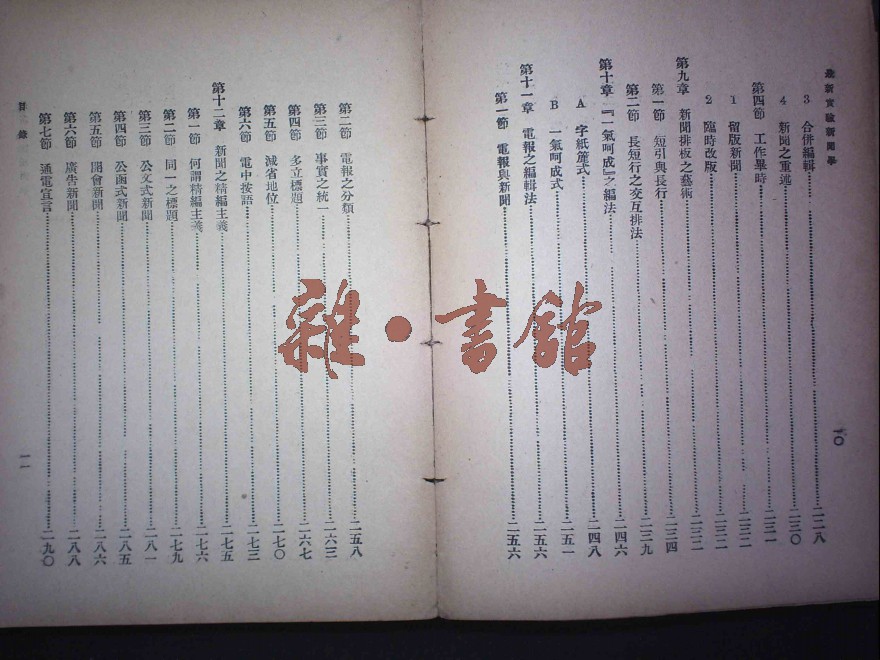 最新實驗新聞學
3 合併編輯……二二八
4 新聞之重述……二三〇
第四節 工作畢時……二三一
1 留版新聞……二三二
2 臨時改版……二三二
第九章 新聞排板之藝術……二三二
第一節 短引與長行……二三四
第二節 長短行之交互排法……二三九
第十章 『一氣呵成』之編法……二四六
A 字紙簏式……二四八
B 一氣呵成式……二五一
第十一章 電報之編輯法……二五六
第一節 電報與新聞……二五六
一〇
第二節 電報之分類……二五八
第三節 事實之統一……二六三
第四節 多立標題……二六七
第五節 減省地位……二七〇
第六節 電中按語……二七三
第十二章 新聞之精編主義……二七五
第一節 何謂精編主義……二七六
第二節 同一之標題……二七九
第三節 公文式新聞……二八一
第四節 公函式新聞……二八五
第五節 開會新聞……二八六
第六節 廣告新聞……二八八
第七節 通電宣言……二九〇
目錄
一一
雜·書館